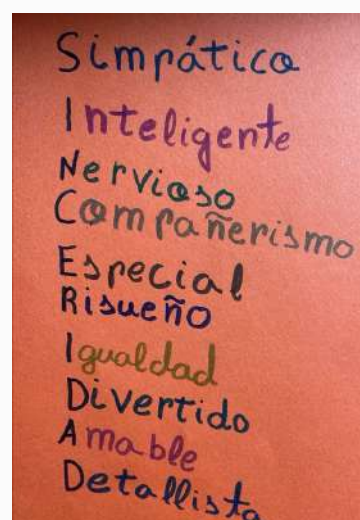 Simpático
Inteligente
Nervioso
Compañerismo
Especial
Risueño
Igualdad
Divertido
Amable
Detallista